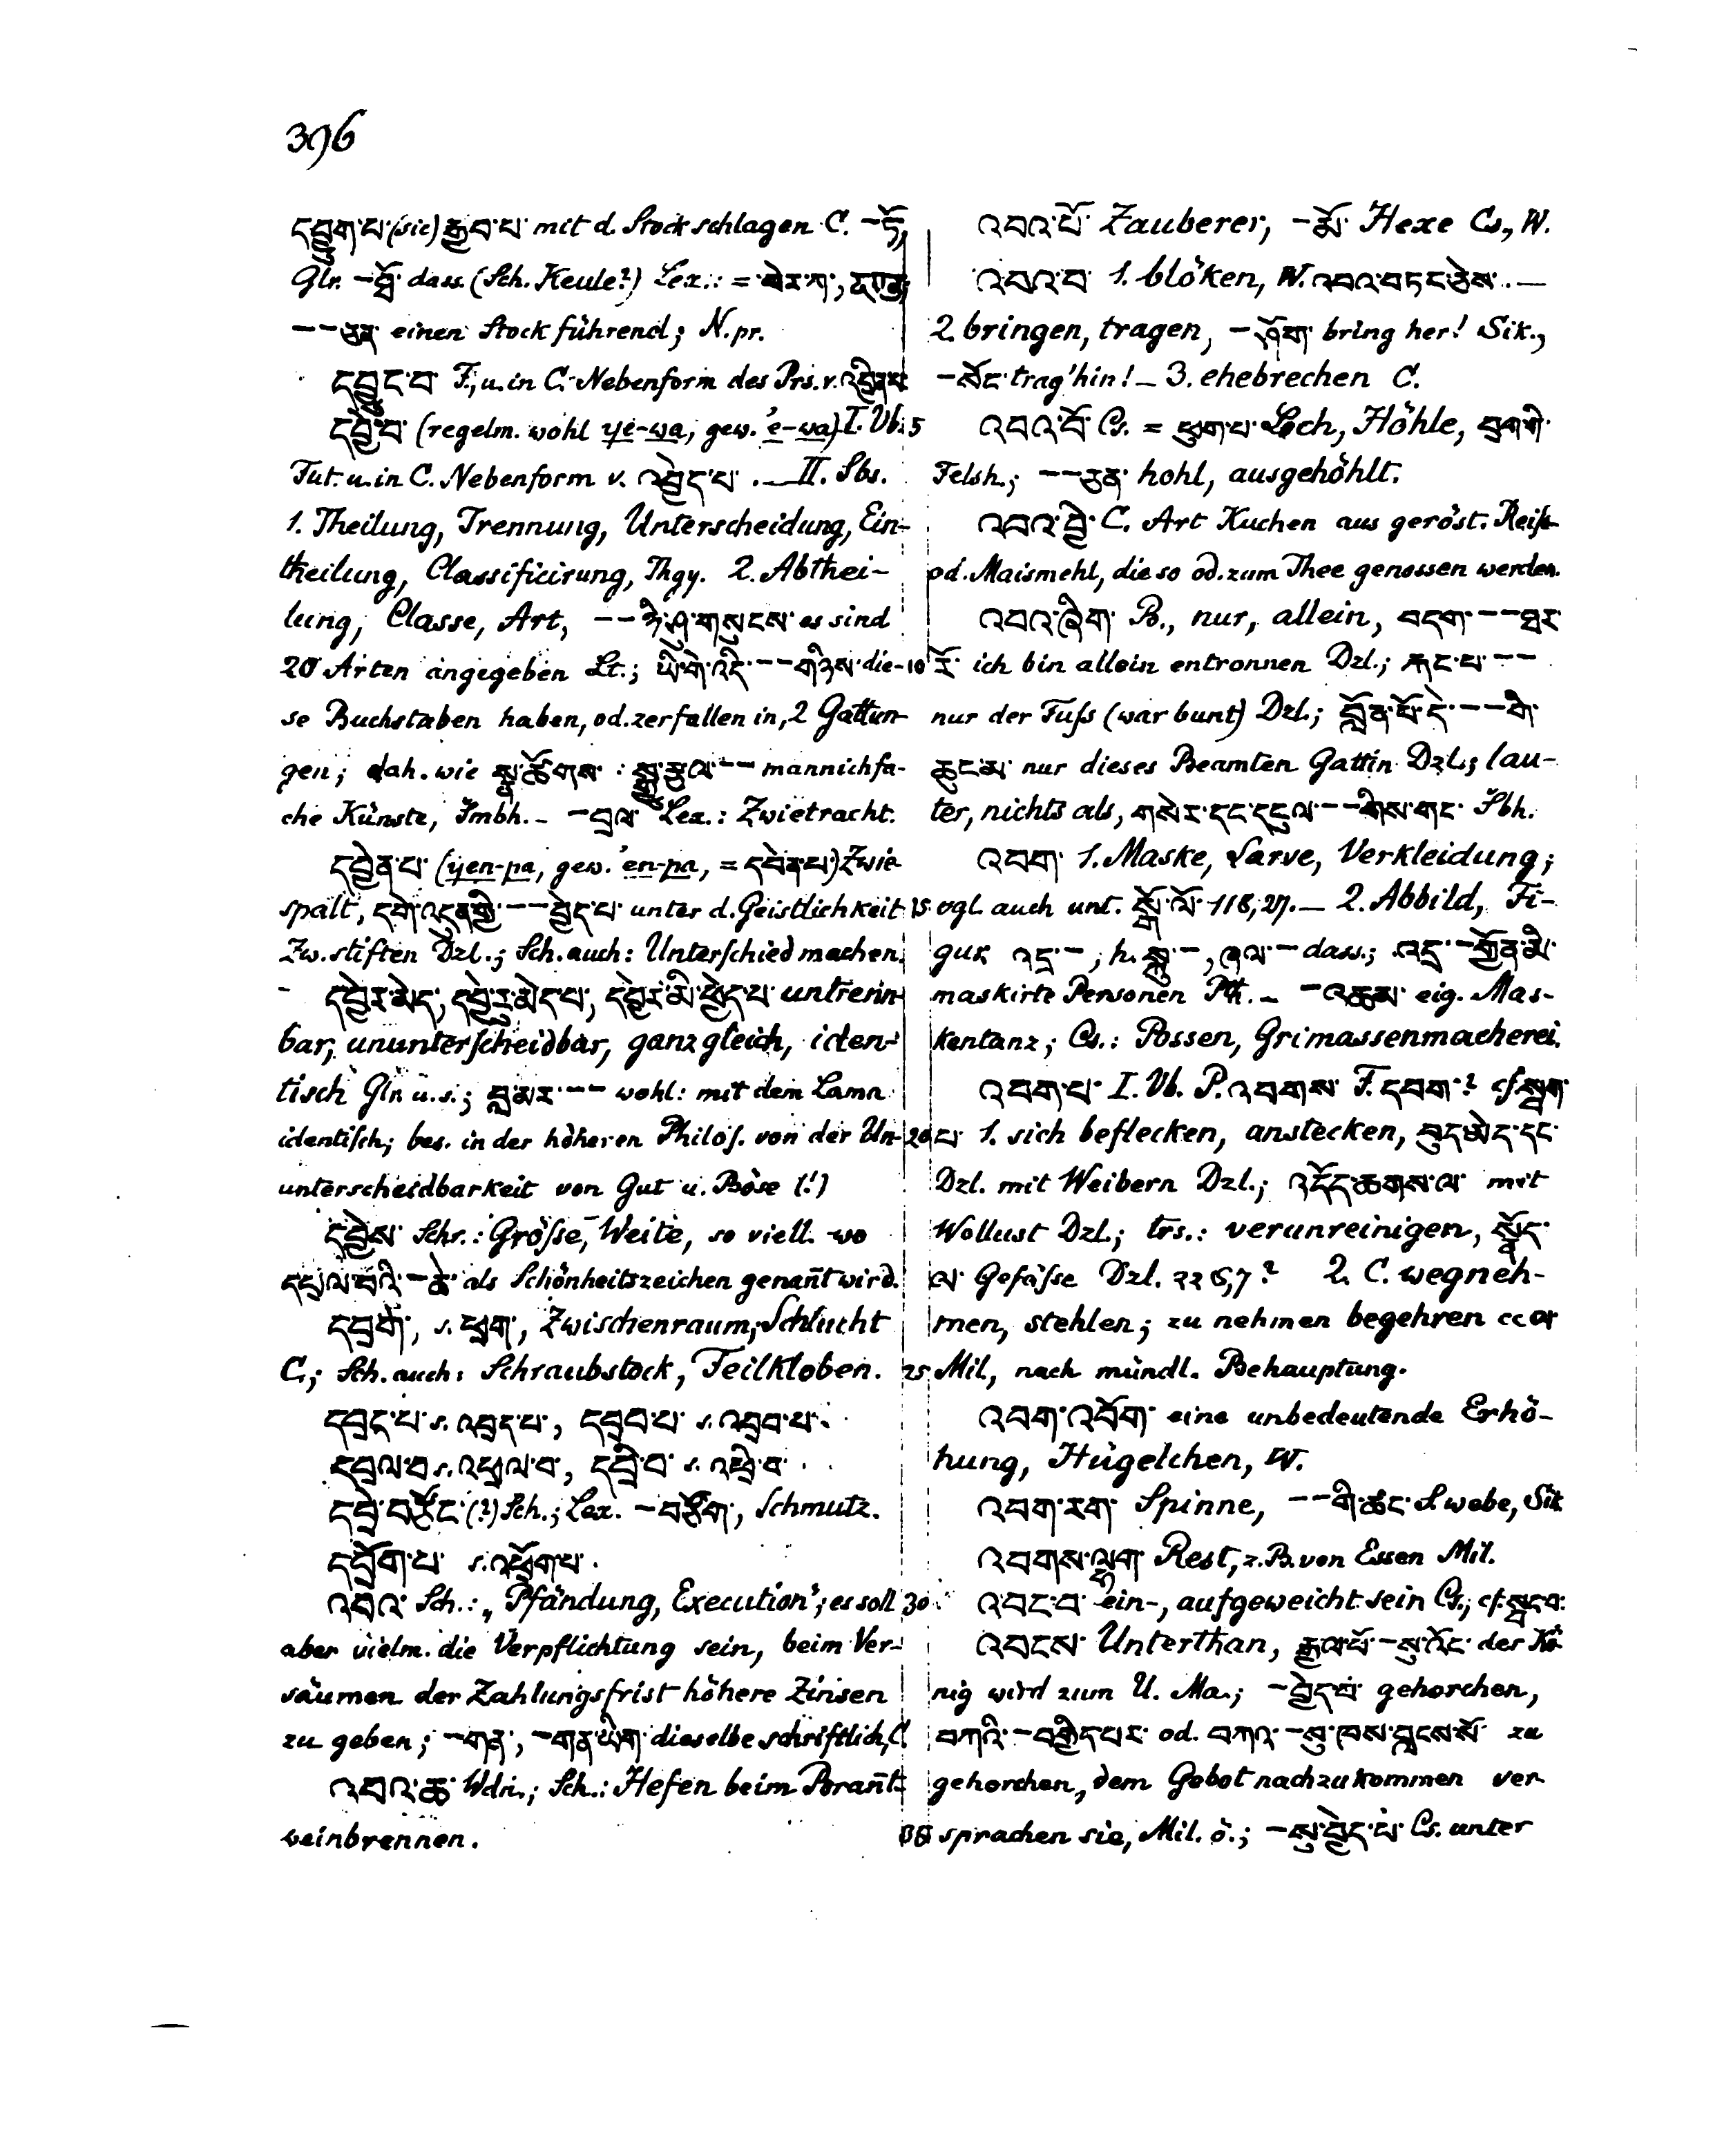 396
དབྱུག་པ་ (sic) རྒྱབ་པ་ mit d. Stock schlagen C. –ཏོ,
Glr. –ཐོ་ dass. (Sch. Keule?) Lex.: =
–– ཅན་ einen Stock führend; N. pr.
དབྱུང་བ་ F., u. in C. Nebenform des Prs. v. འབྱིན་པ་
དབྱེ་བ་ (regelm. wohl ye-wa, gew. 'e-wa) I. Vb. 5
Fut. u. in C. Nebenform v. འབྱེད་པ་. — II. Sbs.
1. Theilung, Trennung, Unterscheidung, Ein-
theilung, Classificirung, Thgy. 2. Abthei-
lung, Classe, Art, –– ཉི་ཤུ་གསུངས་ es sind
20 Arten angegeben Lt.; ཡི་གེ་འདི་ –– གཉིས་ die- 10
se Buchstaben haben, od. zerfallen in, 2 Gattun-
gen; dah. wie སྣ་ཚོགས་: སྒྱུ་རྩལ་ –– mannichfa-
che Künste, Smbh. – –བྲལ་ Lex.: Zwietracht.
དབྱེན་པ་ (yen-pa, gew. 'en-pa, = དབེན་པ་) Zwie-
spalt, དགེ་འདུན་གྱི་ –– བྱེད་པ་ unter d. Geistlichkeit 15
Zw. stiften Dzl.; Sch. auch: Unterschied machen.
དབྱེར་མེད, དབྱེ་རུ་མེད་པ་, དབྱེར་མི་ཕྱེད་པ་ untrenn-
bar, ununterscheidbar, ganz gleich, iden-
tisch Glr. u. s.; བླ་མར་ –– wohl: mit dem Lama
identisch; bes. in der höheren Philos. von der Un- 20
unterscheidbarkeit von Gut u. Böse (!)
དབྱེས་ Schr.: Grösse, Weite, so viell. wo
དཔྲལ་བའི་ – ཆེ་ als Schönheitszeichen genannt wird.
དབྲག་, s. ཕྲག་, Zwischenraum; Schlucht
C.; Sch. auch: Schraubstock, Feilkloben. 25
དབྲད་པ་ s. འབྲད་པ་, དབྲབ་པ་ s. འབྲབ་པ་.
དབྲལ་བ་ s. འཕྲལ་བ་, དབྲི་བ་ s. འཕྲི་བ་
དབྲེ་བཙོང་ (?) Sch.; Lex. –བཙོག་, Schmutz.
དབྲོག་པ་ s. འཕྲོག་པ་.
འབའ་ Sch.: „Pfändung, Execution"; es soll 30
aber vielm. die Verpflichtung sein, beim Ver-
säumen der Zahlungsfrist höhere Zinsen
zu geben; –གན་, –གན་ཡིག་ dieselbe schriftlich, C.
འབའ་ཆ་ Wdn.; Sch.: Hefen beim Brannt-
weinbrennen.
འབའ་པོ་ Zauberer, –མོ་ Hexe Cs., W.
འབའ་བ་ 1. blöken, W. འབའ་བཏང་ཅེས་. —
2. bringen, tragen, –ཤོག་ bring her! Sik.,
–སོང་ trag' hin! — 3. ehebrechen C.
འབའ་བོ་ Cs. = ཕུག་པ་ Loch, Höhle, བྲག་གི་
Felsh.; –– ཅན་ hohl, ausgehöhlt.
འབའ་བྱེ་ C. Art Kuchen aus geröst. Reiß-
od. Maismehl, die so od. zum Thee genossen werden.
འབའ་ཞིག་ B., nur, allein, བདག་ –– ཐར་
རོ་ ich bin allein entronnen Dzl.; རྐང་པ་ ––
nur der Fuss (war bunt) Dzl.; བློན་པོ་དེ་ –– གི་
ཆུང་མ་ nur dieses Beamten Gattin Dzl.; lau-
ter, nichts als, གསེར་དང་དངུལ་ –– གིས་གང་ Sbh.
འབག་ 1. Maske, Larve, Verkleidung;
vgl. auch unt. སྒྲོ་ལོ་ 118,27. — 2. Abbild, Fi-
gur, འདྲ་ –, h. སྐུ་ –, ཞལ་ – dass.; འདྲ་ – གྱོན་མི་
maskirte Personen Pth. – –འཆམ་ eig. Mas-
kentanz; Cs.: Possen, Grimassenmacherei.
འབག་པ་ I. Vb. P. འབགས་ F. དབག་? cf. སྦག་
པ་ 1. sich beflecken, anstecken, བུད་མེད་དང་
Dzl. mit Weibern Dzl.; འདོད་ཆགས་ལ་ mit
Wollust Dzl.; trs.: verunreinigen, སྣོད་
ལ་ Gefässe Dzl. 22 6,7? 2. C. wegneh-
men, stehlen; zu nehmen begehren ccar
Mil, nach mündl. Behauptung.
འབག་འབོག་ eine unbedeutende Erhö-
hung, Hügelchen, W.
འབག་རག་ Spinne, –– གི་ཚང་ S. webe, Sik
འབགས་ལྷག་ Rest, z. B. von Essen Mil.
འབང་བ་ ein-, aufgeweicht sein Cs., cf. སྦང་བ་.
འབངས་ Unterthan, རྒྱལ་པོ་ – སུ་འོང་ der Kö-
nig wird zum U. Ma.; – བྱེད་པ་ gehorchen,
བཀའི་ – བགྱིད་པར་ od. བཀའ་ – སུ་ཁས་བླངས་སོ་ zu
gehorchen, dem Gebot nachzukommen ver-
sprachen sie, Mil. ö.; – སུ་བྱེད་པ་ Cs. unter